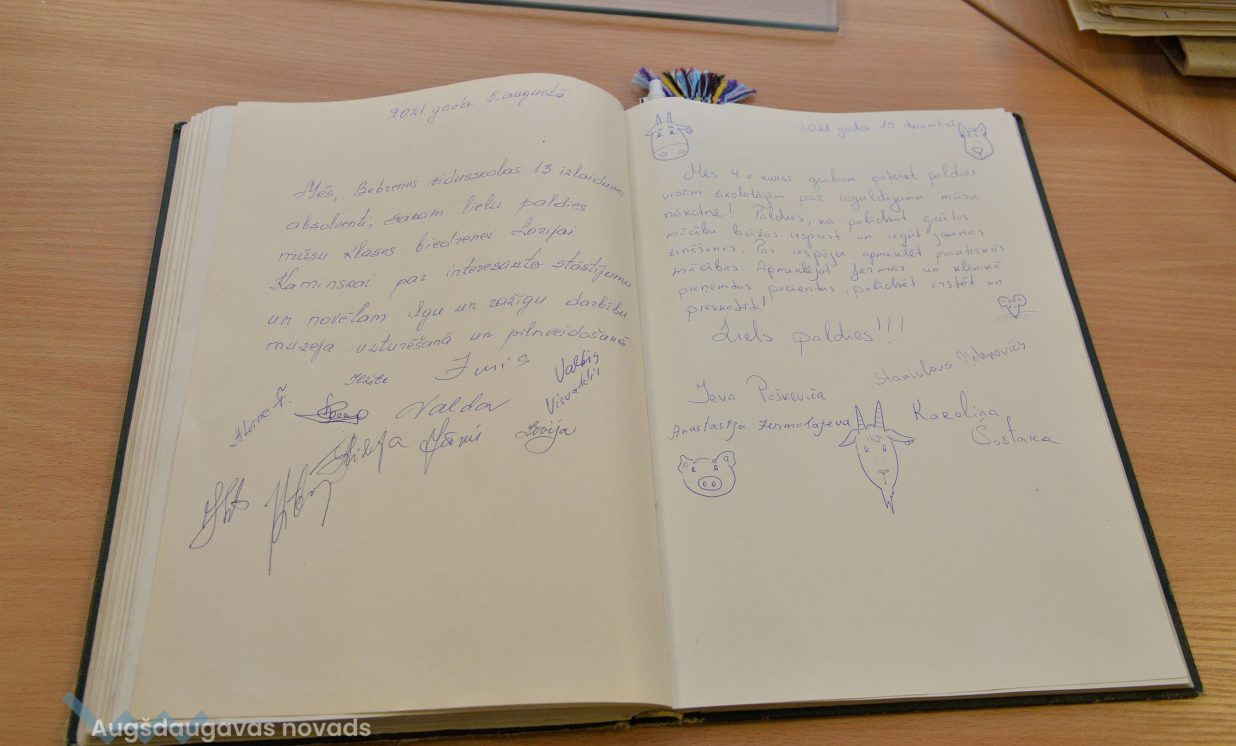 2021. gada 5. augustā.
Mēs, Bebrenes vidusskolas 13. izlaiduma
absolventi, sakam lielu paldies
mūsu klases biedrenei Lozijai
Kaminskai par interesanto stāstījumu
un novēlam ilgu un ražīgu darbību
muzeja uzturēšanā un pilnveidošanā
Juris
Valdis
Visvaldis
Valda
Jānis
Lozija
2021. gada 15. decembrī
Mēs 4 v kurss gribam pateikt paldies
visām skolotājām par ieguldījumu mūsu
nākotnē! Paldies, ka palīdzat grūtos
mācību brīžos izprast un iegūt jaunas
zināšanas. Par iespēju apmeklēt praktiskās
mācības. Apmeklējot fermas un klīnikā
pieņemtos pacientus, palīdzēt ārstēt un
pieskatīt!
Liels paldies!!!
Stanislavs
Ieva Paškeviča
Anastasija Jermolajeva
Karolīna
Šostaka
Augšdaugavas novads